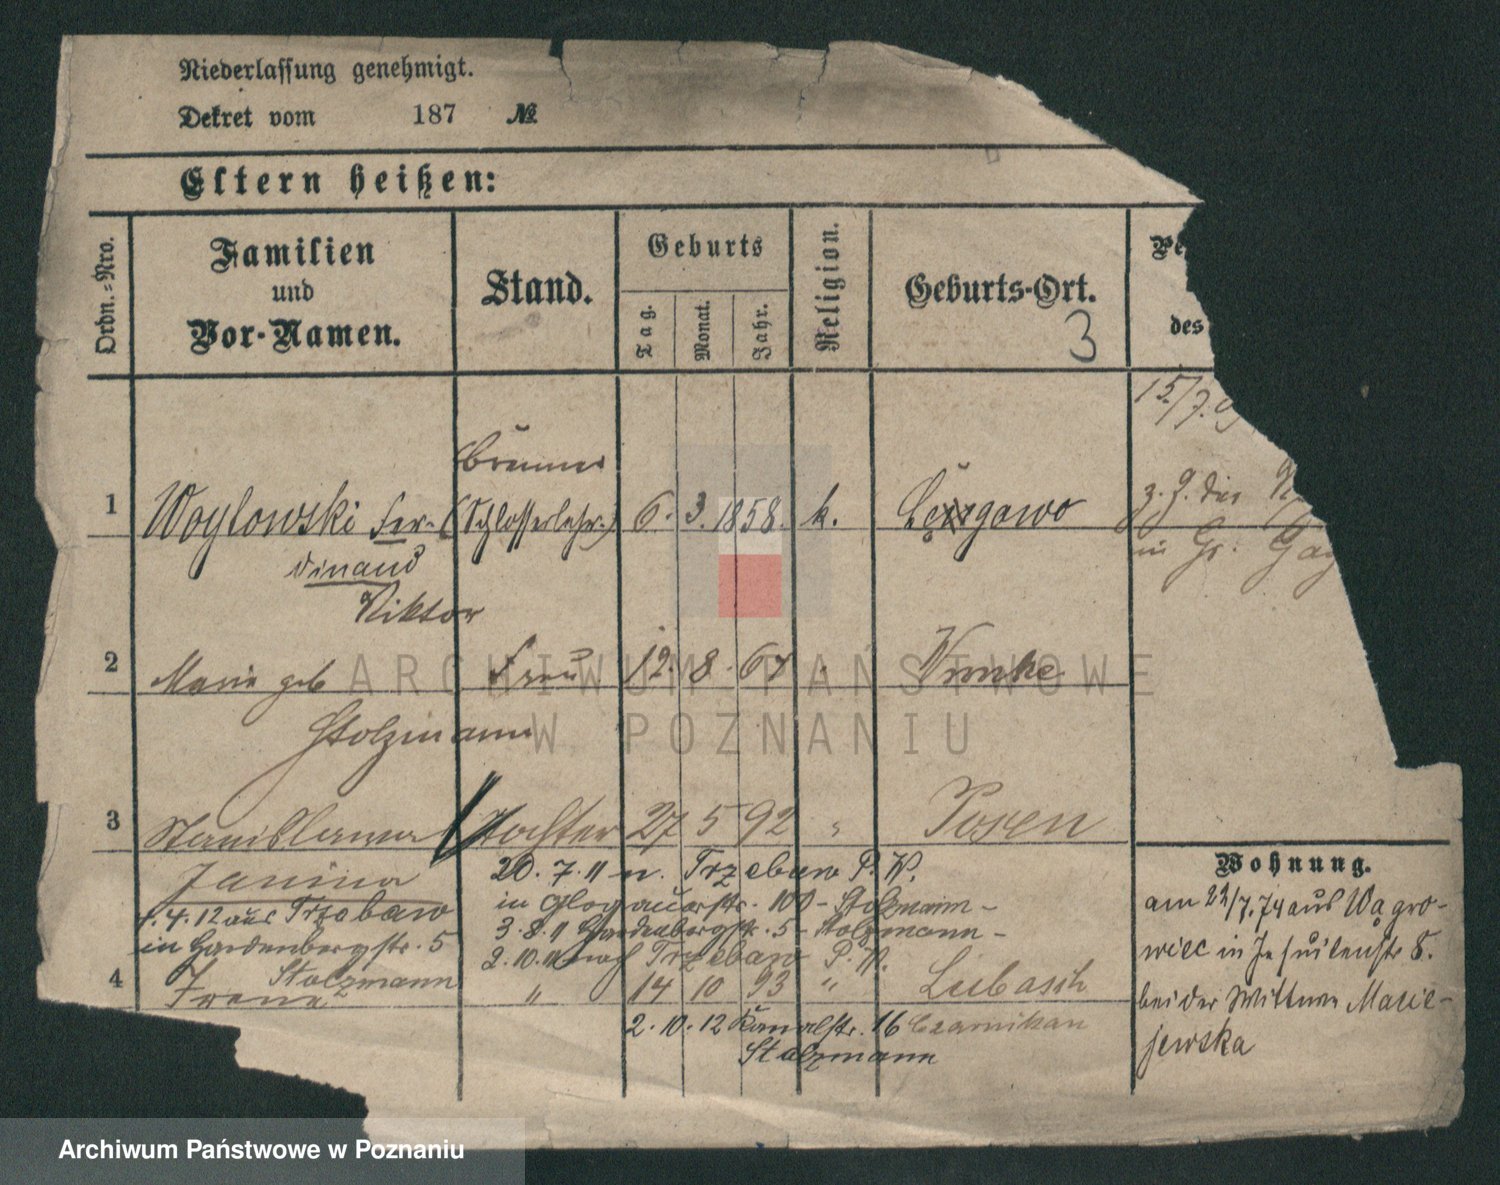 Niederlassung genehmigt.
Dekret vom 187 №
Eltern heißen:
Ordn.=Nro.
Familien
und
Vor-Namen.
Stand.
Geburts
Tag.
Monat.
Jahr.
Religion.
Geburts-Ort.
3
des
15/7.
1 Woytowski Fer- (Schlosserlehr.) 6. 3. 1858. k.
dinand
Viktor
z. Z. des
in Gr.
2 Marie geb Frau 12. 8. 67
Stolzmann
3 Stanislawa Tochter 27 5 92 " Posen
Janina
20. 7. 11 n. Trzebaw P. W.
in Glogauerstr. 100 - Stolzmann -
1. 4. 12 aus Trzebaw
3. 8. 11 Hardenbergstr. 5 - Stolzmann -
in Hardenbergstr. 5
2. 10. 11 nach Trzebaw P. W.
Stolzmann
4 Irena " 14 10 93 " Lubasch
2. 10. 12 Kanalstr. 16 Czarnikau
Stolzmann
Wohnung.
am 22/7.74 aus Wagro-
wiec in Jesuitenstr 8.
bei der Wittwe Macie-
jewska
ARCHIWUM PAŃSTWOWE
W POZNANIU
Archiwum Państwowe w Poznaniu